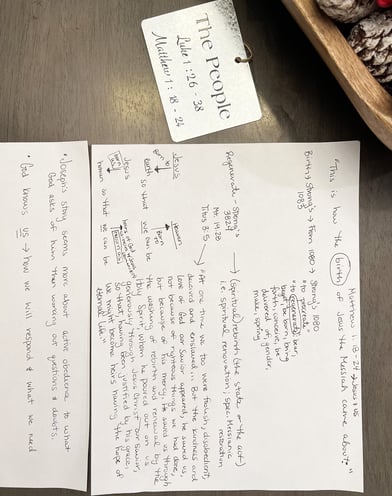 The People
Luke 1:26-38
Matthew 1:18-24
Matthew 1:18-24
"This is how the birth of Jesus the Messiah came about:"
Birth → Strong's 1083 → From 1080 → Strong's 1080
"to procreate"
to regenerate; bear,
beget, be born, bring
forth, conceive, be
delivered of, gender,
make, spring
Regenerate - Strong's 3824 → (spiritual) rebirth (the state or the act)
i.e. spiritual renovation; spec. Messianic
restoration
Mt. 19:28
Titus 3:5 → "At one time we too were foolish, disobedient,
deceived and enslaved... But the kindness and
love of God our Savior appeared, he saved us,
not because of righteous things we had done,
but because of his mercy. He saved us through
the washing of rebirth and renewal by the
Holy Spirit, whom he poured out on us
generously through Jesus Christ our Savior,
so that, having been justified by his grace,
we might become heirs having the hope of
eternal life."
Jesus
Born to
Earth so that we can be
Heaven
Born to
Jesus
Born as
human so that we can be
• Joseph's story seems more about active obedience to what
God asks of him than working out questions & doubts.
• God knows us → how we will respond & what we need